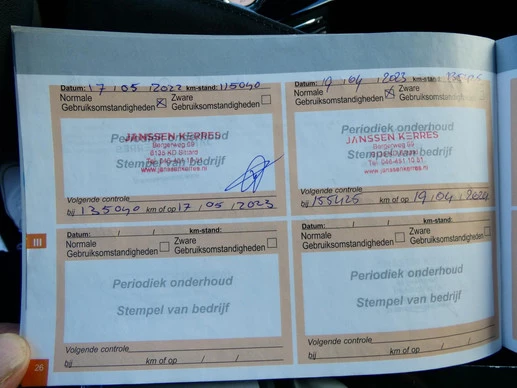 Datum: 17 / 05 / 2022 km-stand: 115040
Normale Gebruiksomstandigheden ☒ Zware Gebruiksomstandigheden ☐
Periodiek onderhoud
JANSSEN KERRES
Bergerweg 69
Sittard
Tel. 046-451 10 31
www.janssenkerres.nl
Stempel van bedrijf
Volgende controle
bij 135040 km of op 17 / 05 / 2023
Datum: 19 / 04 / 2023 km-stand:
Normale Gebruiksomstandigheden ☒ Zware Gebruiksomstandigheden ☐
Periodiek onderhoud
JANSSEN KERRES
Bergerweg 69
Tel. 046-451 10 31
www.janssenkerres.nl
Stempel van bedrijf
Volgende controle
bij 155426 km of op 19 / 04 / 2024
III
Datum: / / km-stand:
Normale Gebruiksomstandigheden ☐ Zware Gebruiksomstandigheden ☐
Periodiek onderhoud
Stempel van bedrijf
Volgende controle
bij km of op / /
Datum: / / km-stand:
Normale Gebruiksomstandigheden ☐ Zware Gebruiksomstandigheden ☐
Periodiek onderhoud
Stempel van bedrijf
Volgende controle
bij km of op / /
26